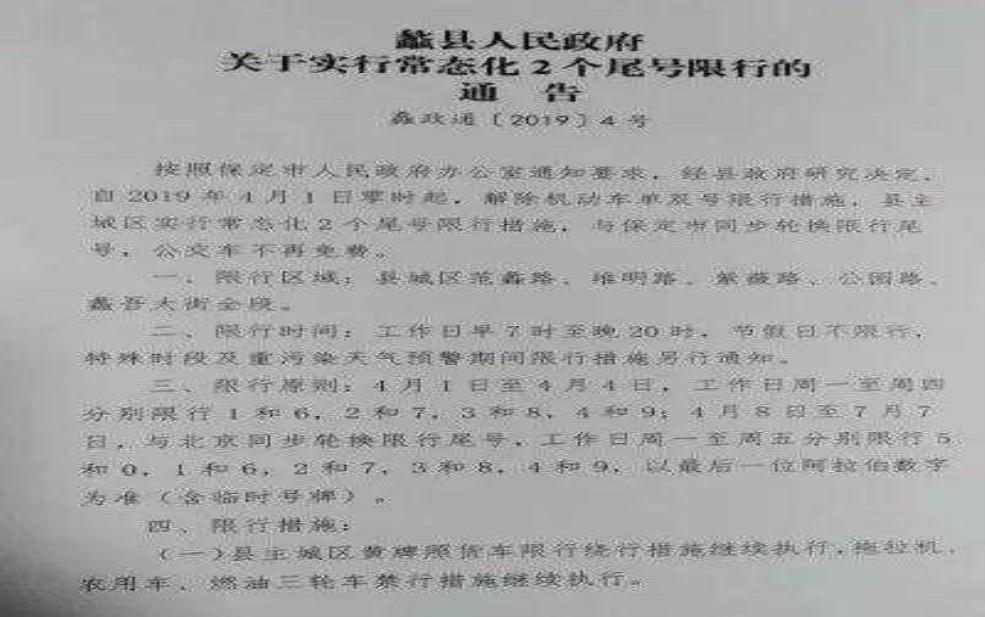 蠡县人民政府
关于实行常态化2个尾号限行的
通 告
蠡政通〔2019〕4号
按照保定市人民政府办公室通知要求，经县政府研究决定，
自2019年4月1日零时起，解除机动车单双号限行措施，县主
城区实行常态化2个尾号限行措施，与保定市同步轮换限行尾
号，公交车不再免费。
一、限行区域：县城区范蠡路、维明路、紫薇路、公园路、
蠡吾大街全段。
二、限行时间：工作日早7时至晚20时，节假日不限行，
特殊时段及重污染天气预警期间限行措施另行通知。
三、限行原则：4月1日至4月4日，工作日周一至周四
分别限行1和6，2和7，3和8，4和9；4月8日至7月7
日，与北京同步轮换限行尾号，工作日周一至周五分别限行5
和0，1和6，2和7，3和8，4和9，以最后一位阿拉伯数字
为准（含临时号牌）。
四、限行措施：
（一）县主城区黄牌照货车限行绕行措施继续执行，拖拉机、
农用车、燃油三轮车禁行措施继续执行。